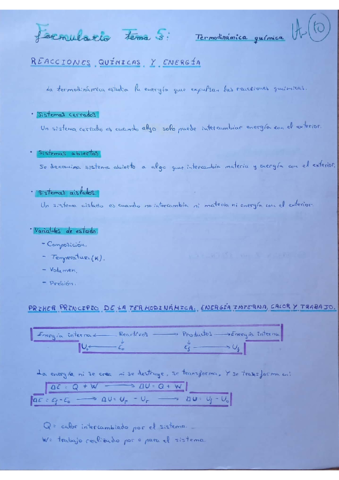 Formulario Tema 5: Termodinámica química
10
REACCIONES QUÍMICAS Y ENERGÍA
La termodinámica estudia la energía que expulsan las reacciones químicas.
· Sistemas cerrados
Un sistema cerrado es cuando algo solo puede intercambiar energía con el exterior.
· Sistemas abiertos
Se denomina sistema abierto a algo que intercambia materia y energía con el exterior.
· Sistemas aislados
Un sistema aislado es cuando no intercambia ni materia ni energía con el exterior.
· Variables de estado
- Composición.
- Temperatura (K).
- Volumen.
- Presión.
PRIMER PRINCIPIO DE LA TERMODINÁMICA, ENERGÍA INTERNA, CALOR Y TRABAJO.
Energía Interna Reactivos Productos Energía Interna
La energía ni se crea ni se destruye. Se transforma. Y se transforma en:
ΔE = Q + W → ΔU = Q + W
Q = calor intercambiado por el sistema.
W = trabajo realizado por o para el sistema.